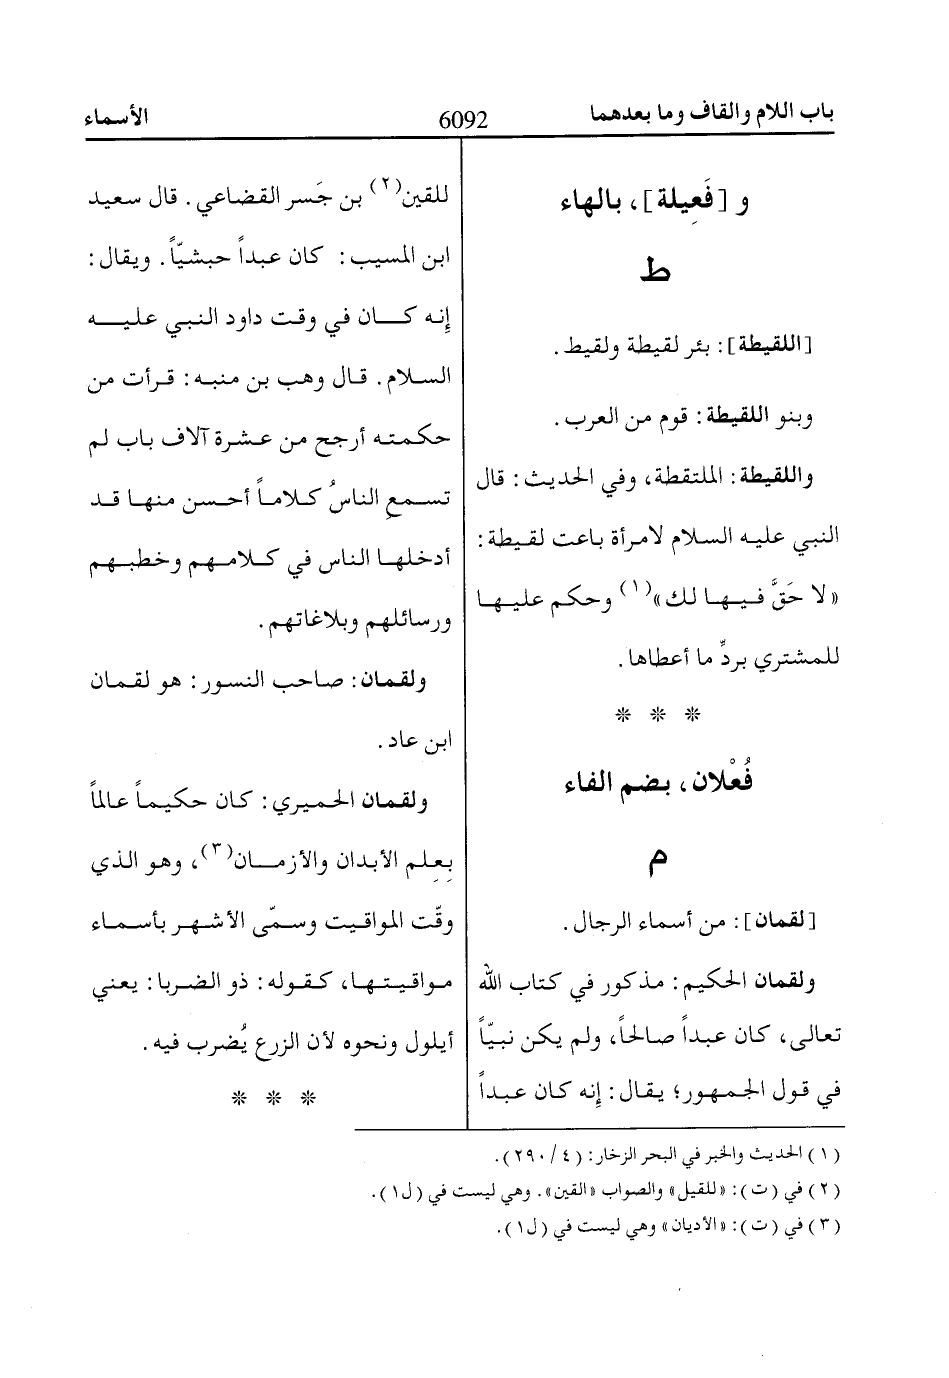 باب اللام والقاف وما بعدهما 6092 الأسماء
و [فَعِيلة]، بالهاء
ط
[اللقيطة]: بئر لقيطة ولقيط.
وبنو اللقيطة: قوم من العرب.
واللقيطة: الملتقطة، وفي الحديث: قال
النبي عليه السلام لامرأة باعت لقيطة:
«لا حَقَّ فيها لك»(١) وحكم عليها
للمشتري بردِّ ما أعطاها.
* * *
فُعْلان، بضم الفاء
م
[لقمان]: من أسماء الرجال.
ولقمان الحكيم: مذكور في كتاب الله
تعالى، كان عبداً صالحاً، ولم يكن نبيّاً
في قول الجمهور؛ يقال: إنه كان عبداً
للقين(٢) بن جَسر القضاعي. قال سعيد
ابن المسيب: كان عبداً حبشيّاً. ويقال:
إنه كان في وقت داود النبي عليه
السلام. قال وهب بن منبه: قرأت من
حكمته أرجح من عشرة آلاف باب لم
تسمعِ الناسُ كلاماً أحسن منها قد
أدخلها الناس في كلامهم وخطبهم
ورسائلهم وبلاغاتهم.
ولقمان: صاحب النسور: هو لقمان
ابن عاد.
ولقمان الحميري: كان حكيماً عالماً
بعِلم الأبدان والأزمان(٣)، وهو الذي
وقّت المواقيت وسمّى الأشهر بأسماء
مواقيتها، كقوله: ذو الضربا: يعني
أيلول ونحوه لأن الزرع يُضرب فيه.
* * *
(١) الحديث والخبر في البحر الزخار: (٤/ ٢٩٠).
(٢) في (ت): «للقيل» والصواب «القين». وهي ليست في (ل١).
(٣) في (ت): «الأديان» وهي ليست في (ل١).